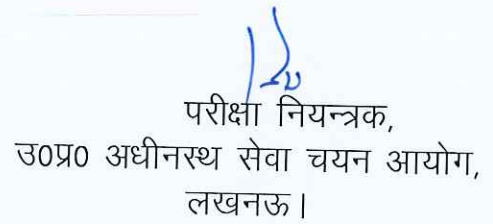 परीक्षा नियन्त्रक,
उ0प्र0 अधीनस्थ सेवा चयन आयोग,
लखनऊ।